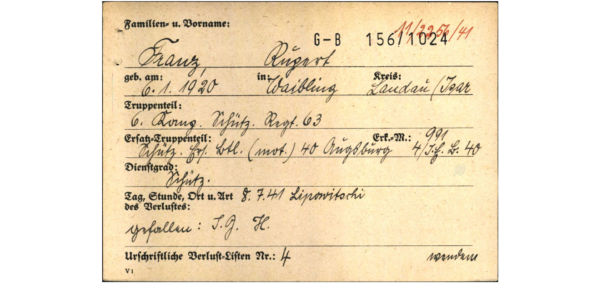 Familien- u. Vorname:
G-B 156/1024 11/2356/41
Franz, Rupert
geb. am: in Kreis:
6.1.1920 Waibling Landau/Isar
Truppenteil:
6. Komp. Schütz. Regt. 63
Ersatz-Truppenteil: Erk.-M.: 991
Schütz. Ers. Btl. (mot.) 40 Augsburg 4/I.E.B. 40
Dienstgrad:
Schütz.
Tag, Stunde, Ort u. Art 8.7.41 Lipowitschi
des Verlustes:
gefallen: I.G. H.
Urschriftliche Verlust-Listen Nr.: 4 wenden
V1